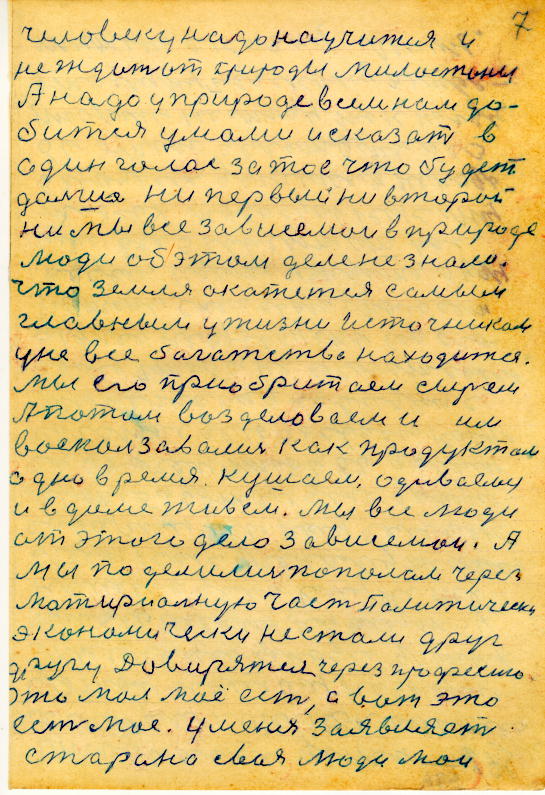 7
человеку надо научится и
не ждат от природы милостыни
А надо у природе всем нам до-
бится умами и сказат в
один голас за тое что будет
далше ни первый ни второй
ни мы все зависемои в природе
люди об этом деле не знали.
что земля окажется самым
главным у жизни источникам
у не все багатства находится.
мы его приобритаем сырем
А потом возделоваем и им
воспользавалис как продуктам
одно время. кушаем, одиваемся
и в доме живем. мы все люди
от этого дело зависемои. А
мы по делилис пополам через
матириалную част Палитически
экономически не стали друг
другу Довирятся через професию
это мол моё ест, а вот это
ест мое. у меня заявляет
старана свая люди мои